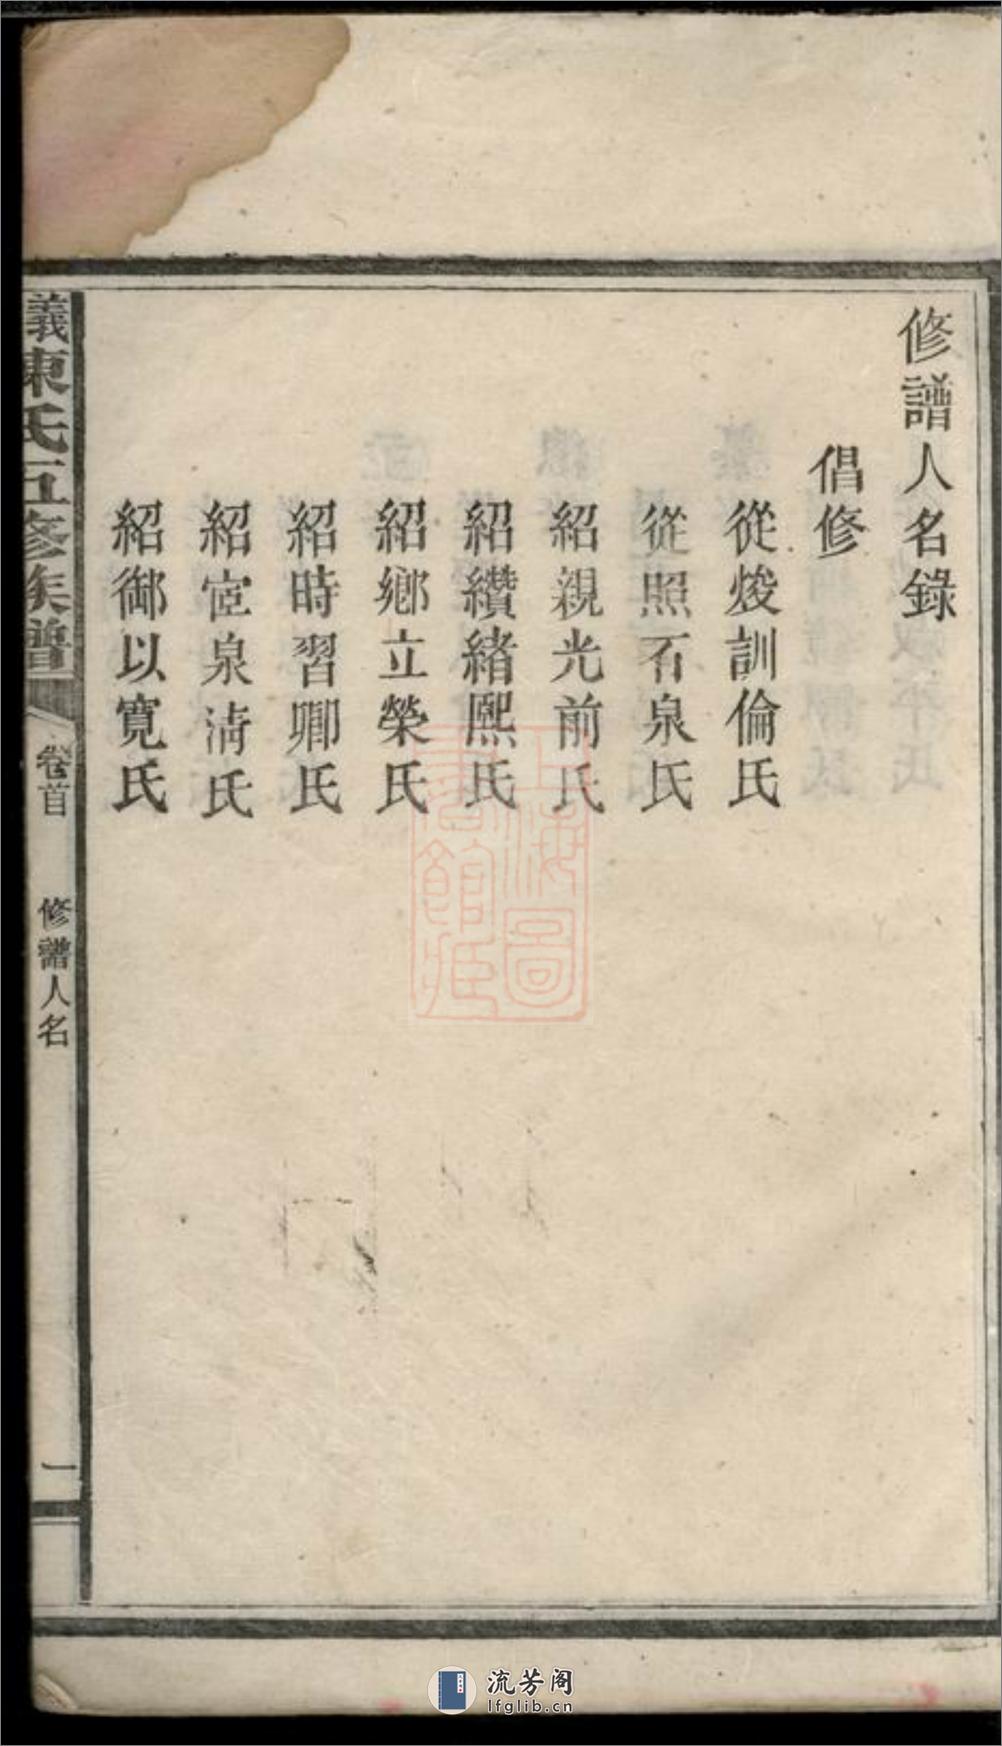 修譜人名錄
倡修
從焌訓倫氏
從照石泉氏
紹親光前氏
紹纘緒熙氏
紹鄉立榮氏
紹時習卿氏
紹宦泉淸氏
紹御以寬氏
義陳氏五修族譜
卷首
修譜人名
一
上海圖書館藏
流芳阁
lfglib.cn